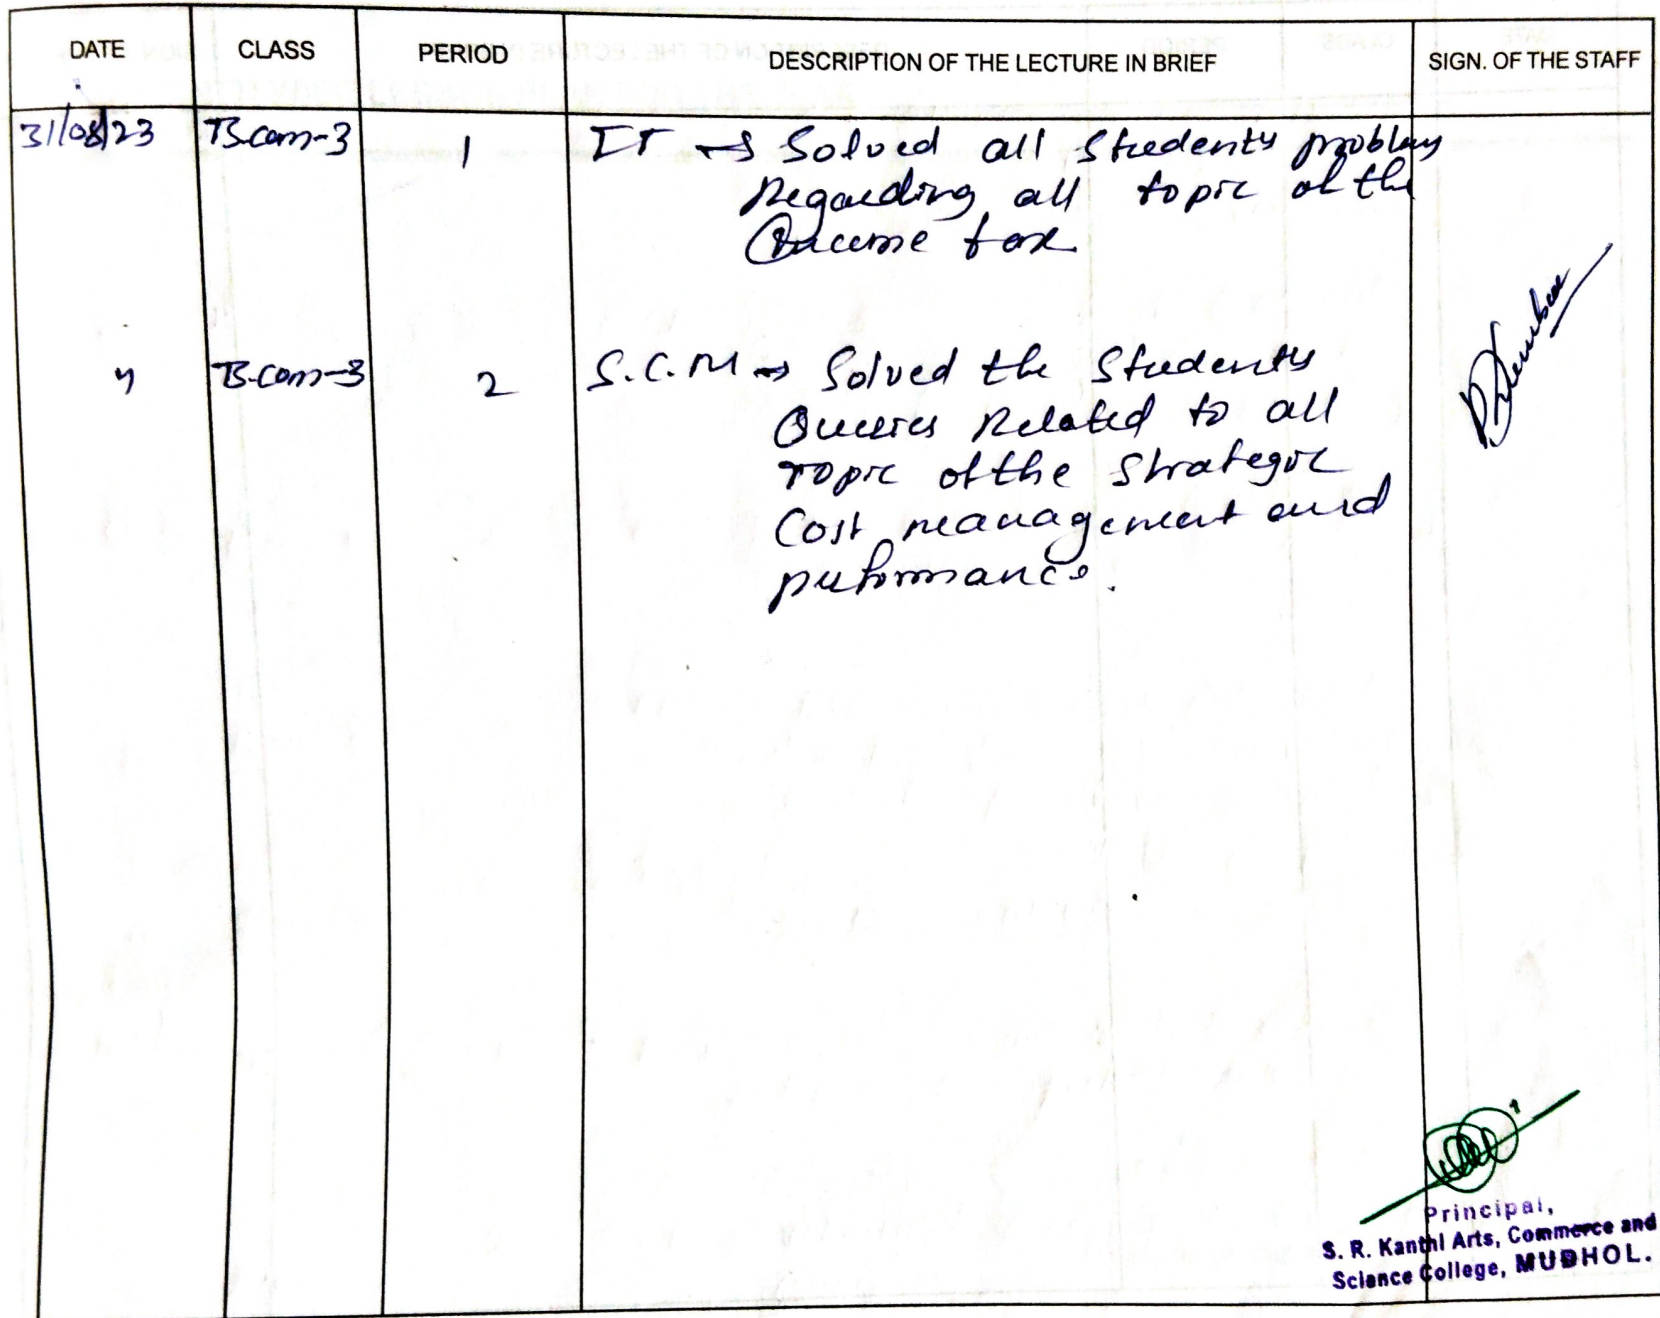 DATE CLASS PERIOD DESCRIPTION OF THE LECTURE IN BRIEF SIGN. OF THE STAFF
31/08/23 B.com-3 1 IT → Solved all Students problems
Regarding all topic of the
Income tax
" B.com-3 2 S.C.M → Solved the Students
Queries Related to all
Topic of the Strategic
Cost management and
performance.
Principal,
S. R. Kanthi Arts, Commerce and
Science College, MUDHOL.